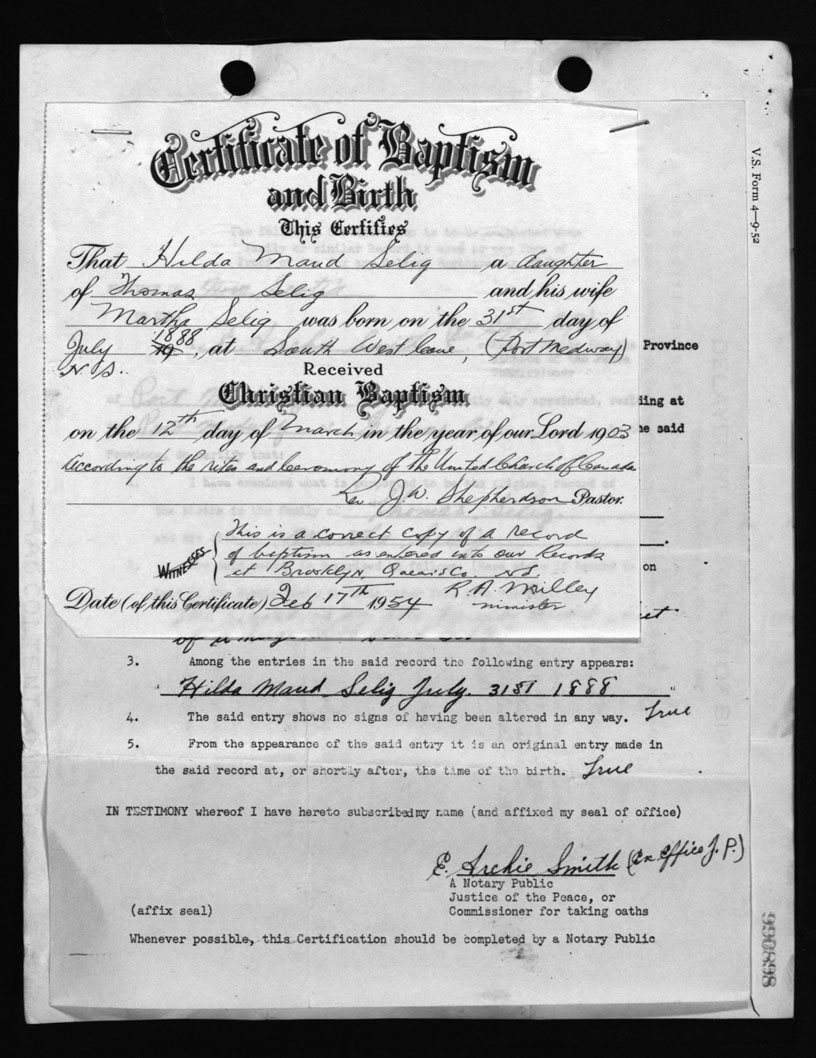 Certificate of Baptism
and Birth
This Certifies
That Hilda Maud Selig a daughter
of Thomas Selig and his wife
Martha Selig was born on the 31st day of
July 1888 19, at South West Cove, (Port Medway) Province
N S.
Received
Christian Baptism
ding at
on the 12th day of March in the year of our Lord 1903
he said
According to the rites and Ceremony of the United Church of Canada
Rev J W. Shepherdson Pastor.
WITNESSES
This is a correct copy of a record
of baptism as entered into our Records
at Brooklyn, Queens Co. N S.
on
Date (of this Certificate) Feb 17th 1954 R. A. Milley
minister
3. Among the entries in the said record the following entry appears:
" Hilda Maud Selig July. 31st 1888 "
4. The said entry shows no signs of having been altered in any way. True
5. From the appearance of the said entry it is an original entry made in
the said record at, or shortly after, the time of the birth. True
IN TESTIMONY whereof I have hereto subscribed my name (and affixed my seal of office)
E. Archie Smith (Ex Office J. P.)
A Notary Public
Justice of the Peace, or
(affix seal) Commissioner for taking oaths
Whenever possible, this Certification should be completed by a Notary Public
V.S. Form 4—9-52